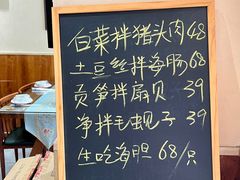 白菜拌猪头肉48
土豆丝拌海肠68
贡笋拌扇贝 39
净拌毛蚬子 39
生吃海胆 68/只